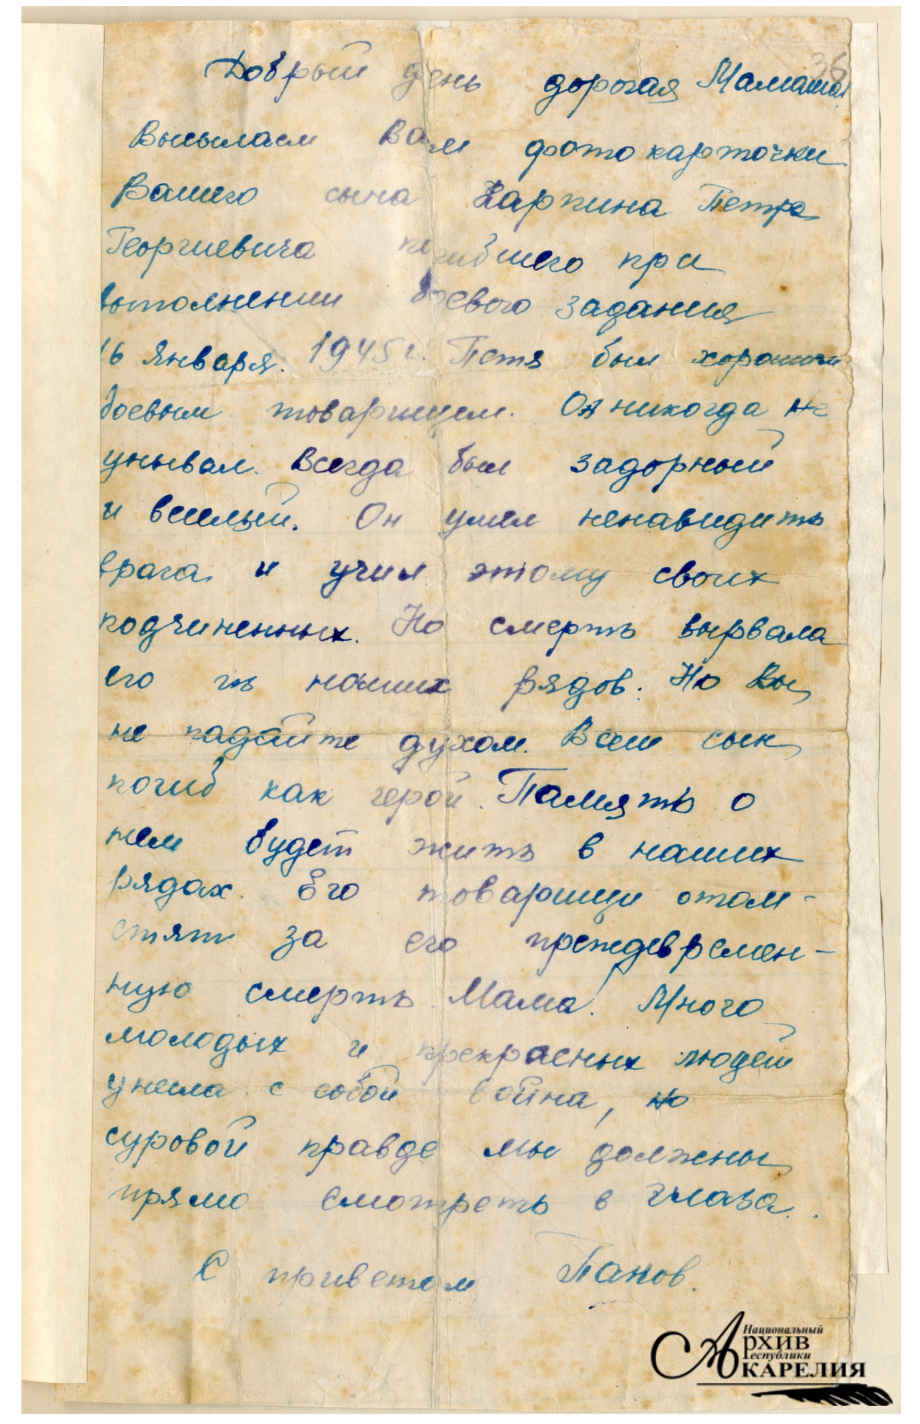 38
Добрый день дорогая Мамаша!
Высылаем Вам фото карточки
Вашего сына Карпина Петра
Георгиевича погибшего при
выполнении боевого задания
16 января. 1945 г. Петя был хорошим
боевым товарищем. Он никогда не
унывал. Всегда был задорный
и веселый. Он умел ненавидить
врага и учил этому своих
подчиненных. Но смерть вырвала
его из наших рядов. Но Вы
не падайте духом. Ваш сын
погиб как герой. Память о
нем будет жить в наших
рядах. Его товарищи отом-
стят за его преждевремен-
ную смерть. Мама! Много
молодых и прекрасных людей
унесла с собой война, но
суровой правде мы должны
прямо смотреть в глаза.
С приветом Панов.
Национальный
Архив
Республики
Карелия